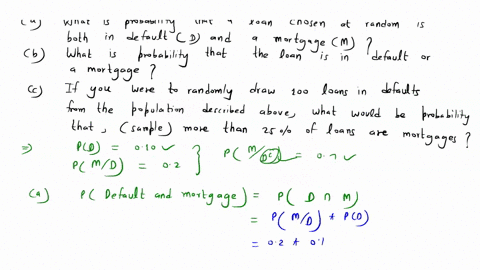 (a) What is probability that a loan chosen at random is
both in default (D) and a mortgage (M) ?
(b) What is probability that the loan is in default or
a mortgage ?
(c) If you were to randomly draw 100 loans in defaults
from the population described above, what would be probability
that, (sample) more than 25% of loans are mortgages ?
⇒ P(D) = 0.10 ✓
P(M/D) = 0.2 } P(M/DC) = 0.7 ✓
(a) P( Default and mortgage) = P( D ∩ M)
= P(M/D) * P(D)
= 0.2 * 0.1